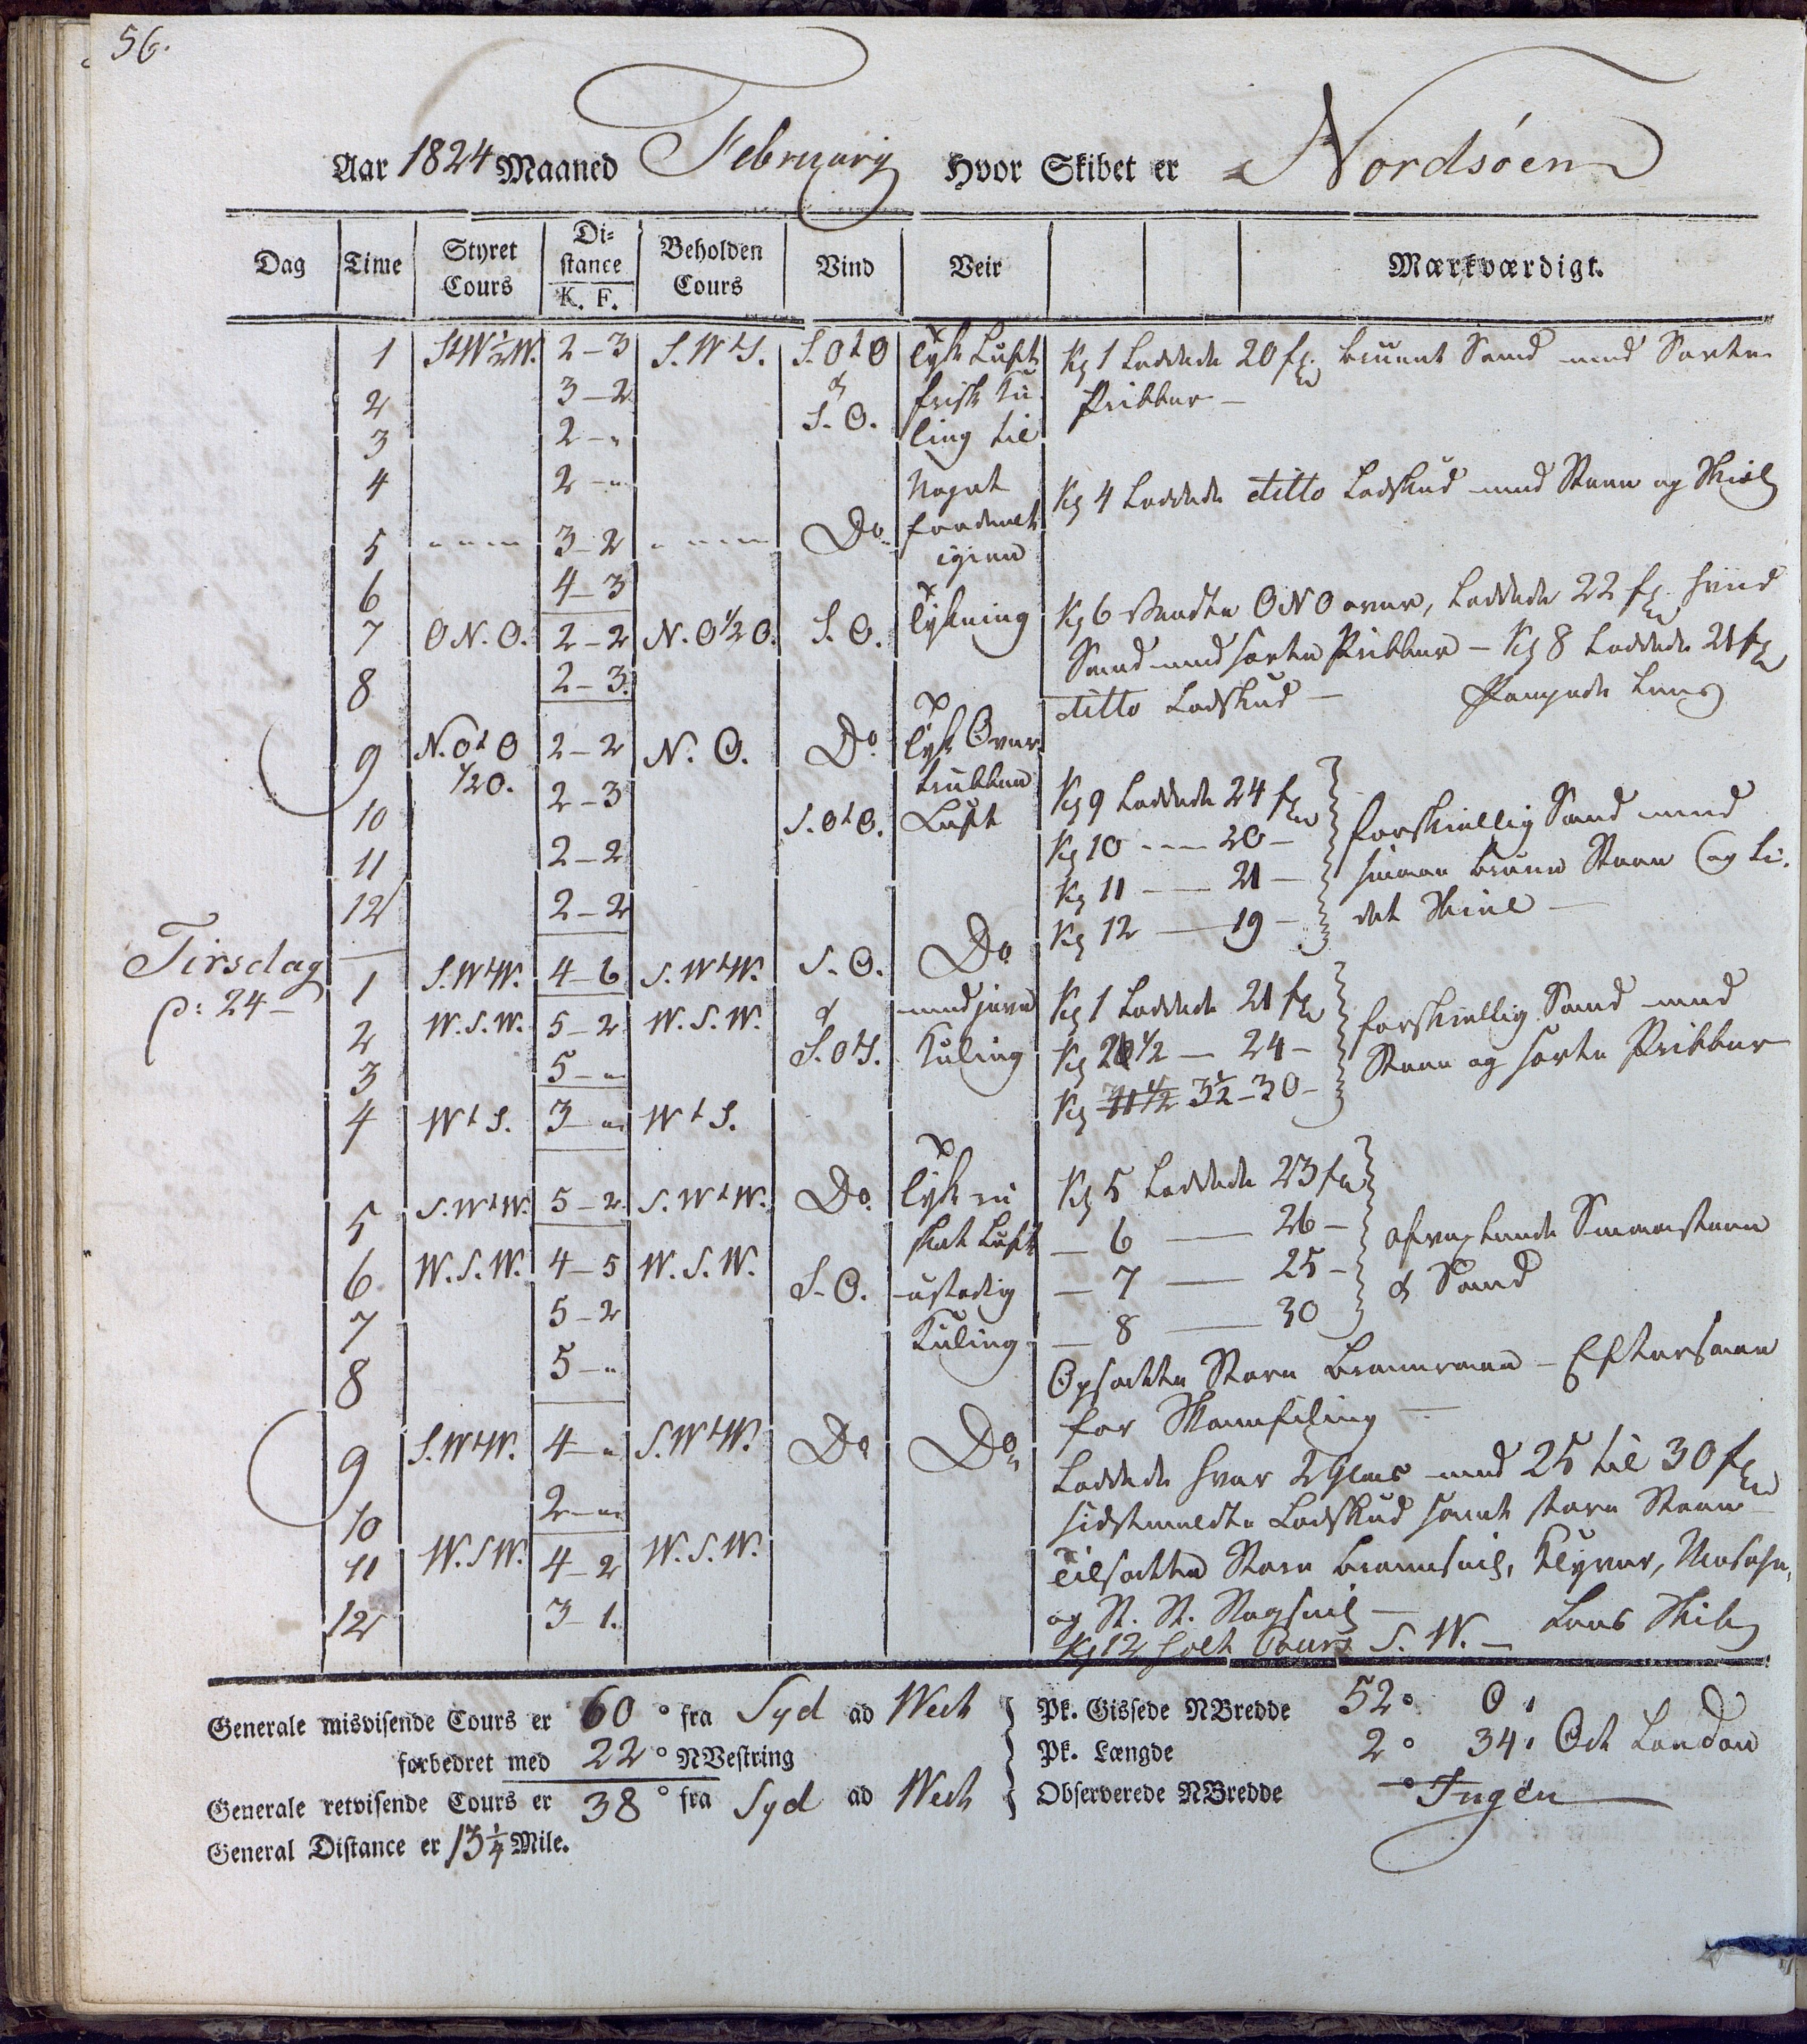 56.
Aar 1824 Maaned Februarij Hvor Skibet er Nordsöen
Dag Time Styret Cours Di=stance K. F. Beholden Cours Vind Veir Mærkværdigt.
1 StW½W. 2–3 S.WtS. S.OtO Tyk Luft Kl 1 Loddede 20 f. bruunt Sand med Sorte
2 3–2 & frisk Ku Pribber –
3 2–" S.O. ling til
4 2–" Noget Kl 4 Loddede ditto Lodskud med Steen og Skiel
5 " " " 3–2 " " " Do foranderl
igien
6 4–3 Kl 6 Vendte ONO over, Loddede 22 f. hviid
7 O N.O. 2–2 N.O½O. S.O. Tykning Sand med sorte Pribber – Kl 8 Loddede 21 f.
8 2–3. ditto Lodskud – Pompede Lens
9 N.OtO ½O. 2–2 N.O. Do Tyk Over
10 2–3 S.OtO. trukken Luft Kl 9 Loddede 24 f.
11 2–2 Kl 10 –– 20 – forskiellig Sand med
12 2–2 Kl 11 –– 21 – smaae bruune Steen og li-
Kl 12 –– 19 – det Skiel –
Tirsdag
p: 24 –
1 S.WtW. 4–6 S.WtW. S.O. Do Kl 1 Loddede 21 f. forskiellig Sand med
2 W.S.W. 5–2 W.S.W. & med jævn Kl 2½ – 24 – Steen og sorte Pribber
3 5–" S.OtS. Kuling Kl 11½ 3½ – 30 –
4 WtS. 3–" WtS.
5 S.WtW. 5–2 S.WtW. Do. Tyk Kl 5 Loddede 23 f.
6 W.S.W. 4–5 W.S.W. Luft – 6 –– 26 – afvexlende Smaasteen
7 5–2 S.O. ustadig – 7 –– 25 – & Sand
8 5–" Kuling – 8 –– 30
Opsatte Store Bramraae – Efterseet
for Skamfiling –
9 S.WtW. 4–" S.WtW. Do Do Loddede hver 2 Glas med 25 til 30 f.
10 2–" sidstmeldte Lodskud samt store Steen
11 W.S.W. 4–2 W.S.W. Tilsatte Store Bramseil, Klyver,
12 3–1. og St. St. Stagseil –
Kl 12 holt Cours S.W. – Lens Skib
Generale misvisende Cours er 60° fra Syd ad West Pk. Gissede NBredde 52° 0'
forbedret med 22° NVestring Pk. Længde 2° 34' Ost London
Generale retvisende Cours er 38° fra Syd ad West Observerede NBredde ° Ingen
General Distance er 13¼ Mile.